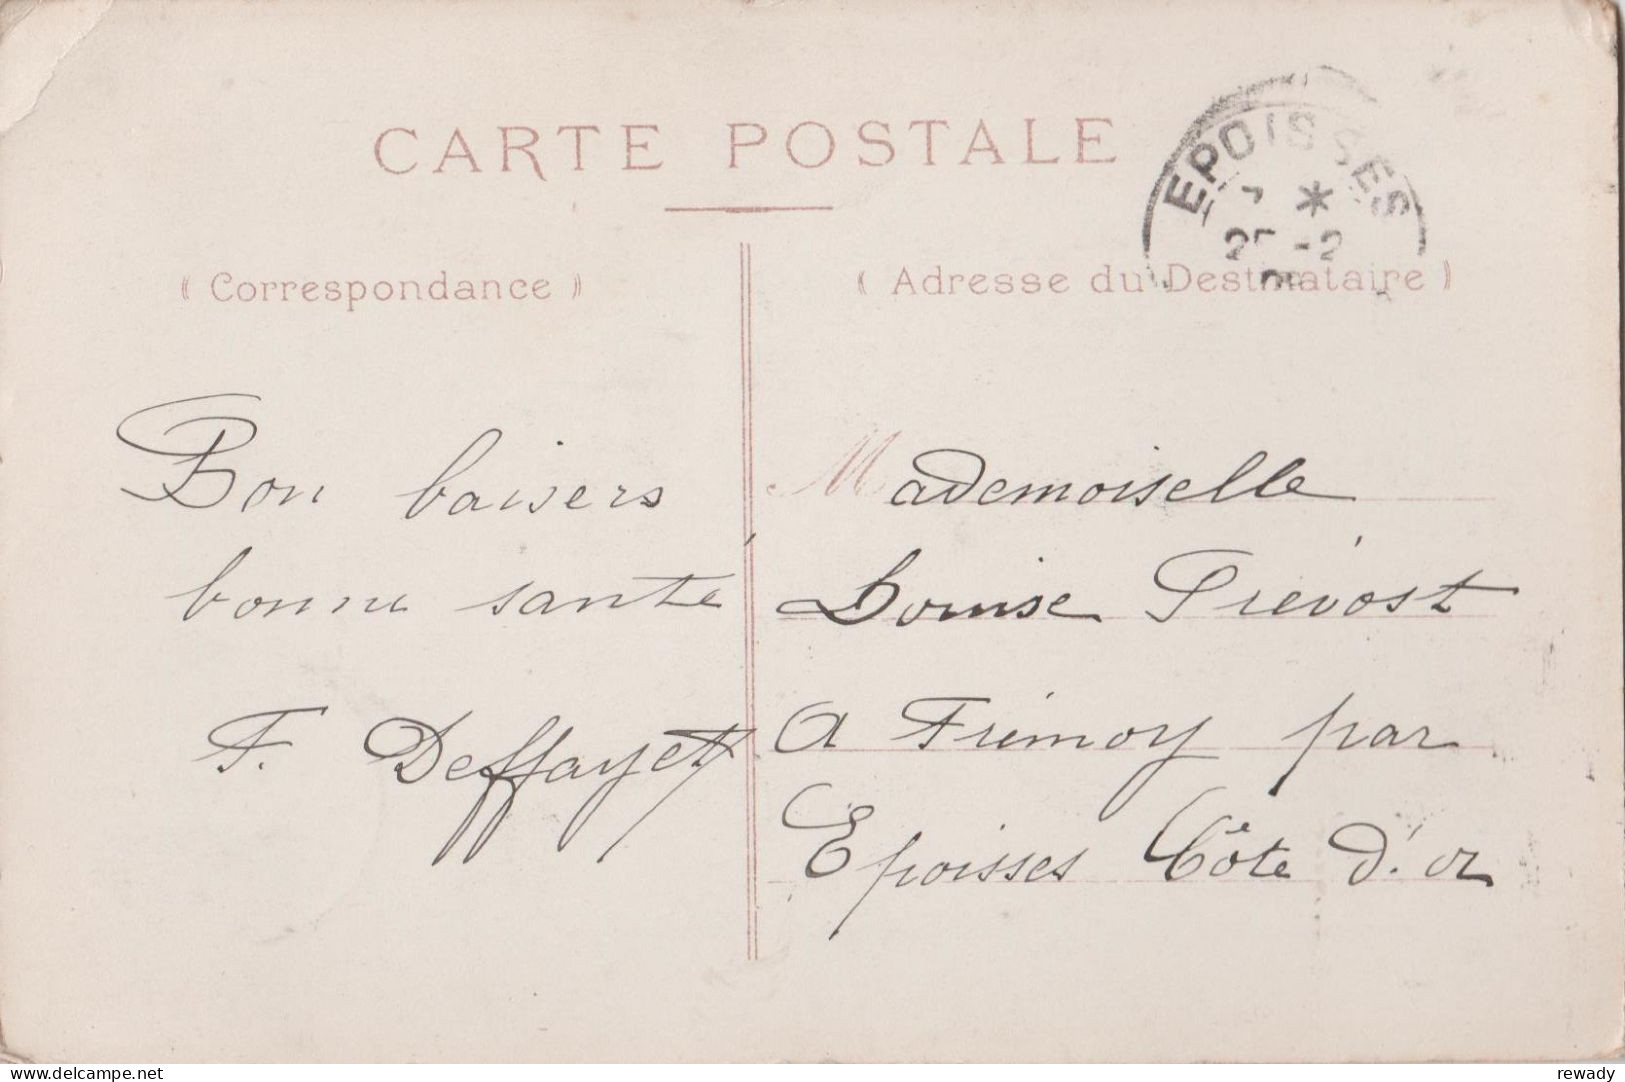 CARTE POSTALE
EPOISSES
25 -2
( Correspondance )
( Adresse du Destinataire )
Bon baisers
bonne santé
F. Deffayet
Mademoiselle
Louise Prévost
A Frémoy par
Epoisses Côte d'or
www.delcampe.net
rewady